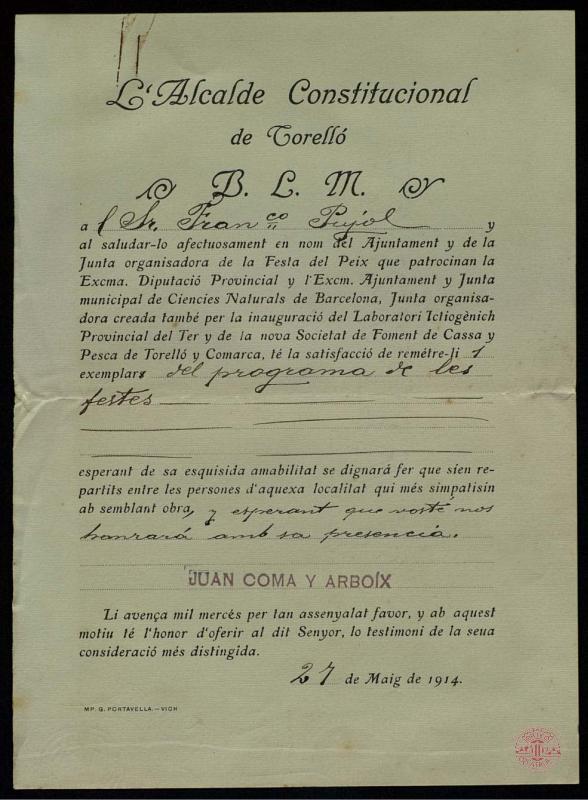 L'Alcalde Constitucional
de Torelló
B. L. M.
a l Sr. Fran.co Pujol y
al saludar-lo afectuosament en nom del Ajuntament y de la
Junta organisadora de la Festa del Peix que patrocinan la
Excma. Diputació Provincial y l'Excm. Ajuntament y Junta
municipal de Ciencies Naturals de Barcelona, Junta organisa-
dora creada també per la inauguració del Laboratori Ictiogènich
Provincial del Ter y de la nova Societat de Foment de Cassa y
Pesca de Torelló y Comarca, té la satisfacció de remétre-li 1
exemplars del programa de les
festes
esperant de sa esquisida amabilitat se dignará fer que sien re-
partits entre les persones d'aquexa localitat qui més simpatisin
ab semblant obra, y esperant que vosté nos
honrará amb sa presencia.
JUAN COMA Y ARBOÍX
Li avença mil mercés per tan assenyalat favor, y ab aquest
motiu té l'honor d'oferir al dit Senyor, lo testimoni de la seua
consideració més distingida.
27 de Maig de 1914.
MP. G. PORTAVELLA.—VICH